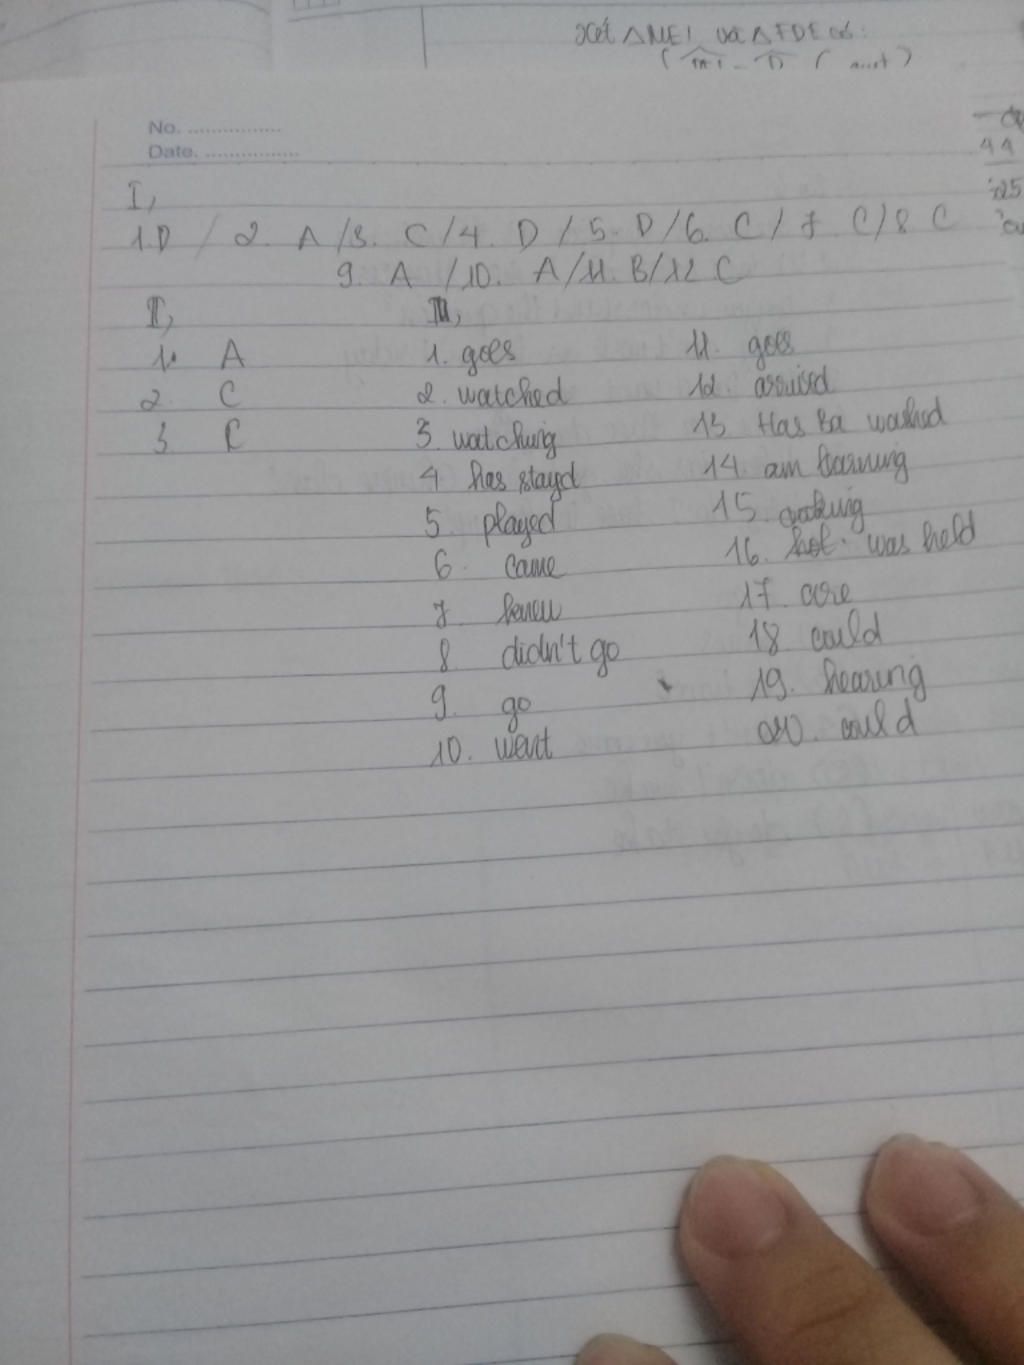 Xét ΔMEI và ΔFDE có:
No. ................
Date. ................
I,
1. D / 2. A / 3. C / 4. D / 5. D / 6. C / 7 C / 8 C
9. A / 10. A / 11. B / 12 C
II,
1. A
2. C
3. C
III,
1. goes
2. watched
3. watching
4 has stayd
5. played
6. came
7. knew
8 didn't go
9. go
10. went
11. goes
12 arrived
13. Has Ba washed
14. am learning
15. cooking
16. was held
17. are
18 could
19. hearing
20. could
44